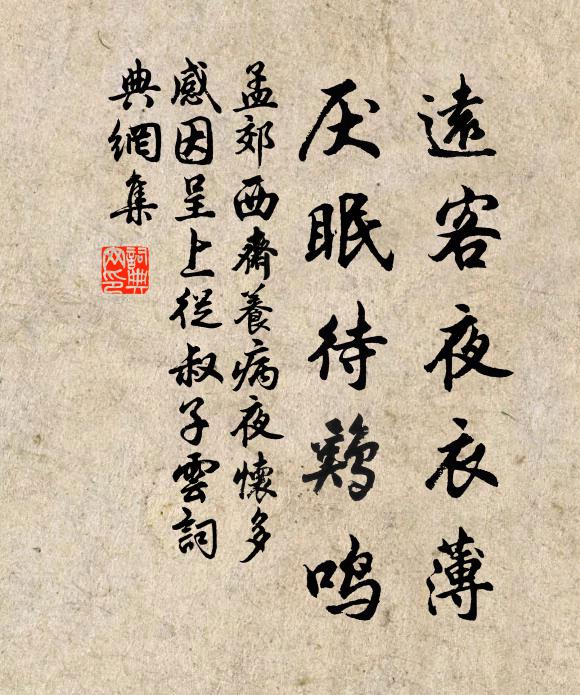 遠客夜衣薄
厌眠待鷄鸣
孟郊西齋養病夜懷多
感因呈上從叔子雲詞
典網集
詞典
网印